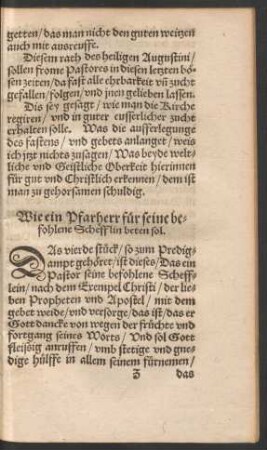 getten/das man nicht den guten weitzen
auch mit ausreusse.
Diesem rath des heiligen Augustini/
sollen frome Pastores in diesen letzten bö-
sen zeiten/da fast alle ehrbarkeit vñ zucht
gefallen/folgen/vnd jnen gelieben lassen.
Dis sey gesagt/wie man die Kirche
regiren/vnd in guter eusserlicher zucht
erhalten solle. Was die ausserlegunge
des fastens/vnd gebets anlanget/weis
ich jtzt nichts zusagen/Was beyde welt-
liche vnd Geistliche Oberkeit hierinnen
für gut vnd Christlich erkennen/dem ist
man zu gehorsamen schuldig.
Wie ein Pfarherr für seine be-
fohlene Schefflin beten sol.
DAs vierde stück/so zum Predig-
ampt gehöret/ist dieses/Das ein
Pastor seine befohlene Scheff-
lein/nach dem Exempel Christi/der lie-
ben Propheten vnd Apostel/mit dem
gebet weide/vnd versorge/das ist/das er
Gott dancke von wegen der früchte vnd
fortgang seines Worts/Vnd sol Gott
fleissig anruffen/vmb stetige vnd gne-
dige hülffe in allem seinem fürnemen/
Z das